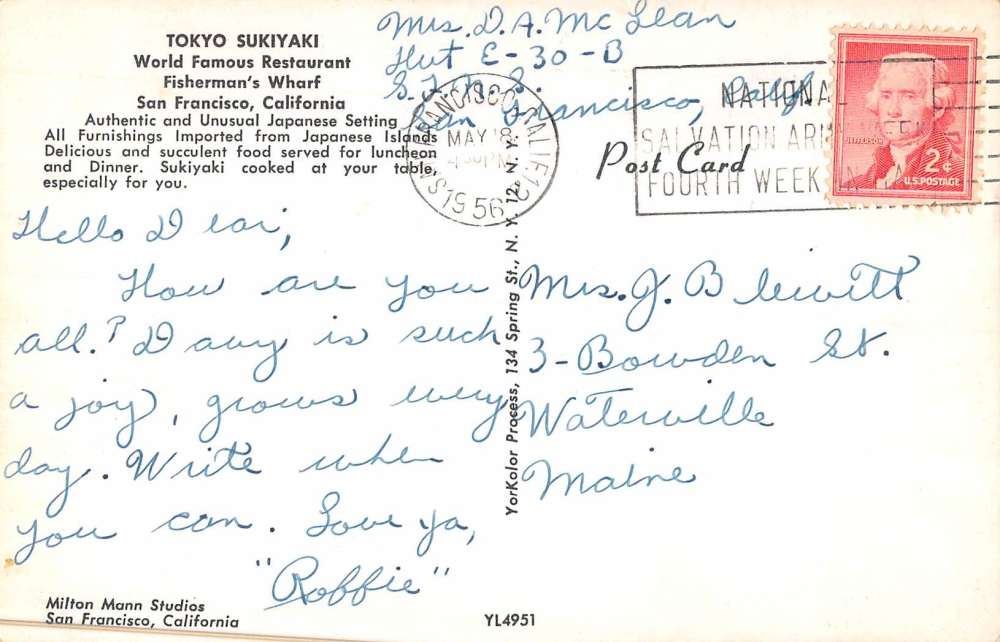 TOKYO SUKIYAKI
World Famous Restaurant
Fisherman's Wharf
San Francisco, California
Authentic and Unusual Japanese Setting
All Furnishings Imported from Japanese Islands
Delicious and succulent food served for luncheon
and Dinner. Sukiyaki cooked at your table,
especially for you.
Mrs. D. A. McLean
Hut E-30-B
San Francisco, Calif.
SAN FRANCISCO, CALIF. 12
MAY 18
4 30 PM
1956
NATIONAL
SALVATION ARMY WEEK
FOURTH WEEK IN
JEFFERSON
2¢
U.S. POSTAGE
Post Card
Hello Dear,
How are you
all? Davy is such
a joy, grows every
day. Write when
you can. Love ya,
"Roffie"
Mrs. J. B
3-Bowden St.
Waterville
Maine
YorKolor Process, 134 Spring St., N. Y. 12, N. Y.
Milton Mann Studios
San Francisco, California
YL4951